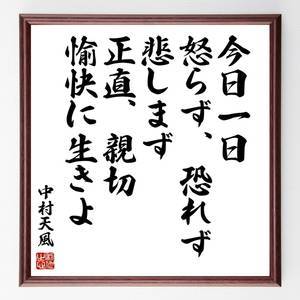 今日一日
怒らず、恐れず
悲しまず
正直、親切
愉快に生きよ
中村天風